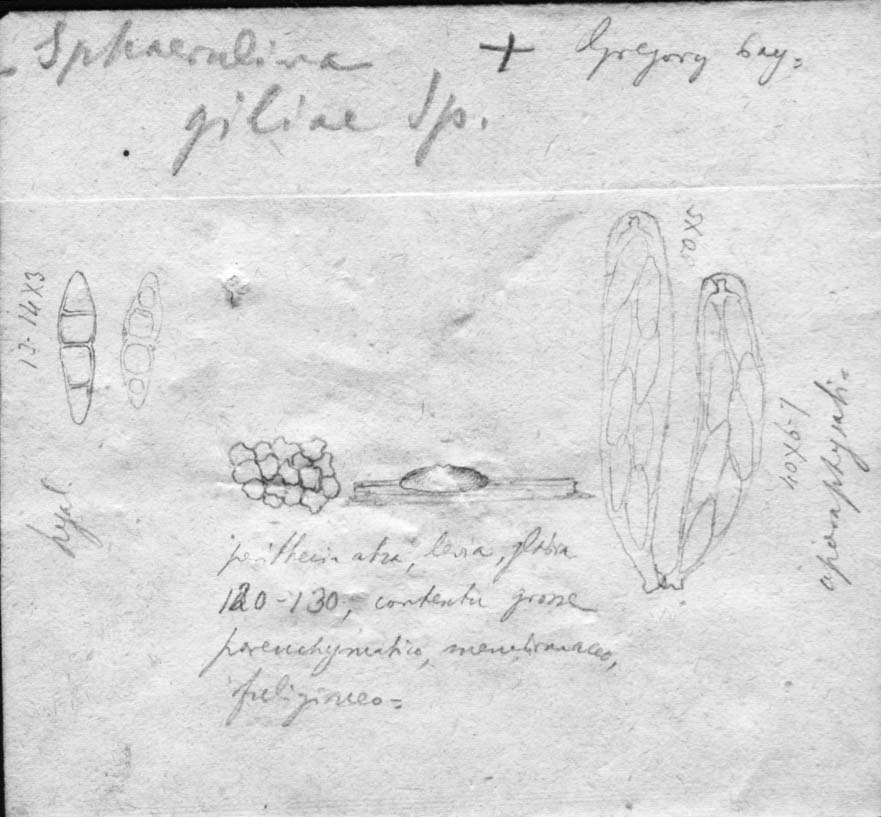 Sphaerulina + Gregory bay=
giliae Sp.
13-14X3
hyal
50X8
40X6-7
aparaphysati=
perithecia atra, levia, glabra
120-130, contextu grosse
parenchymatico, membranaceo,
fuligineo=